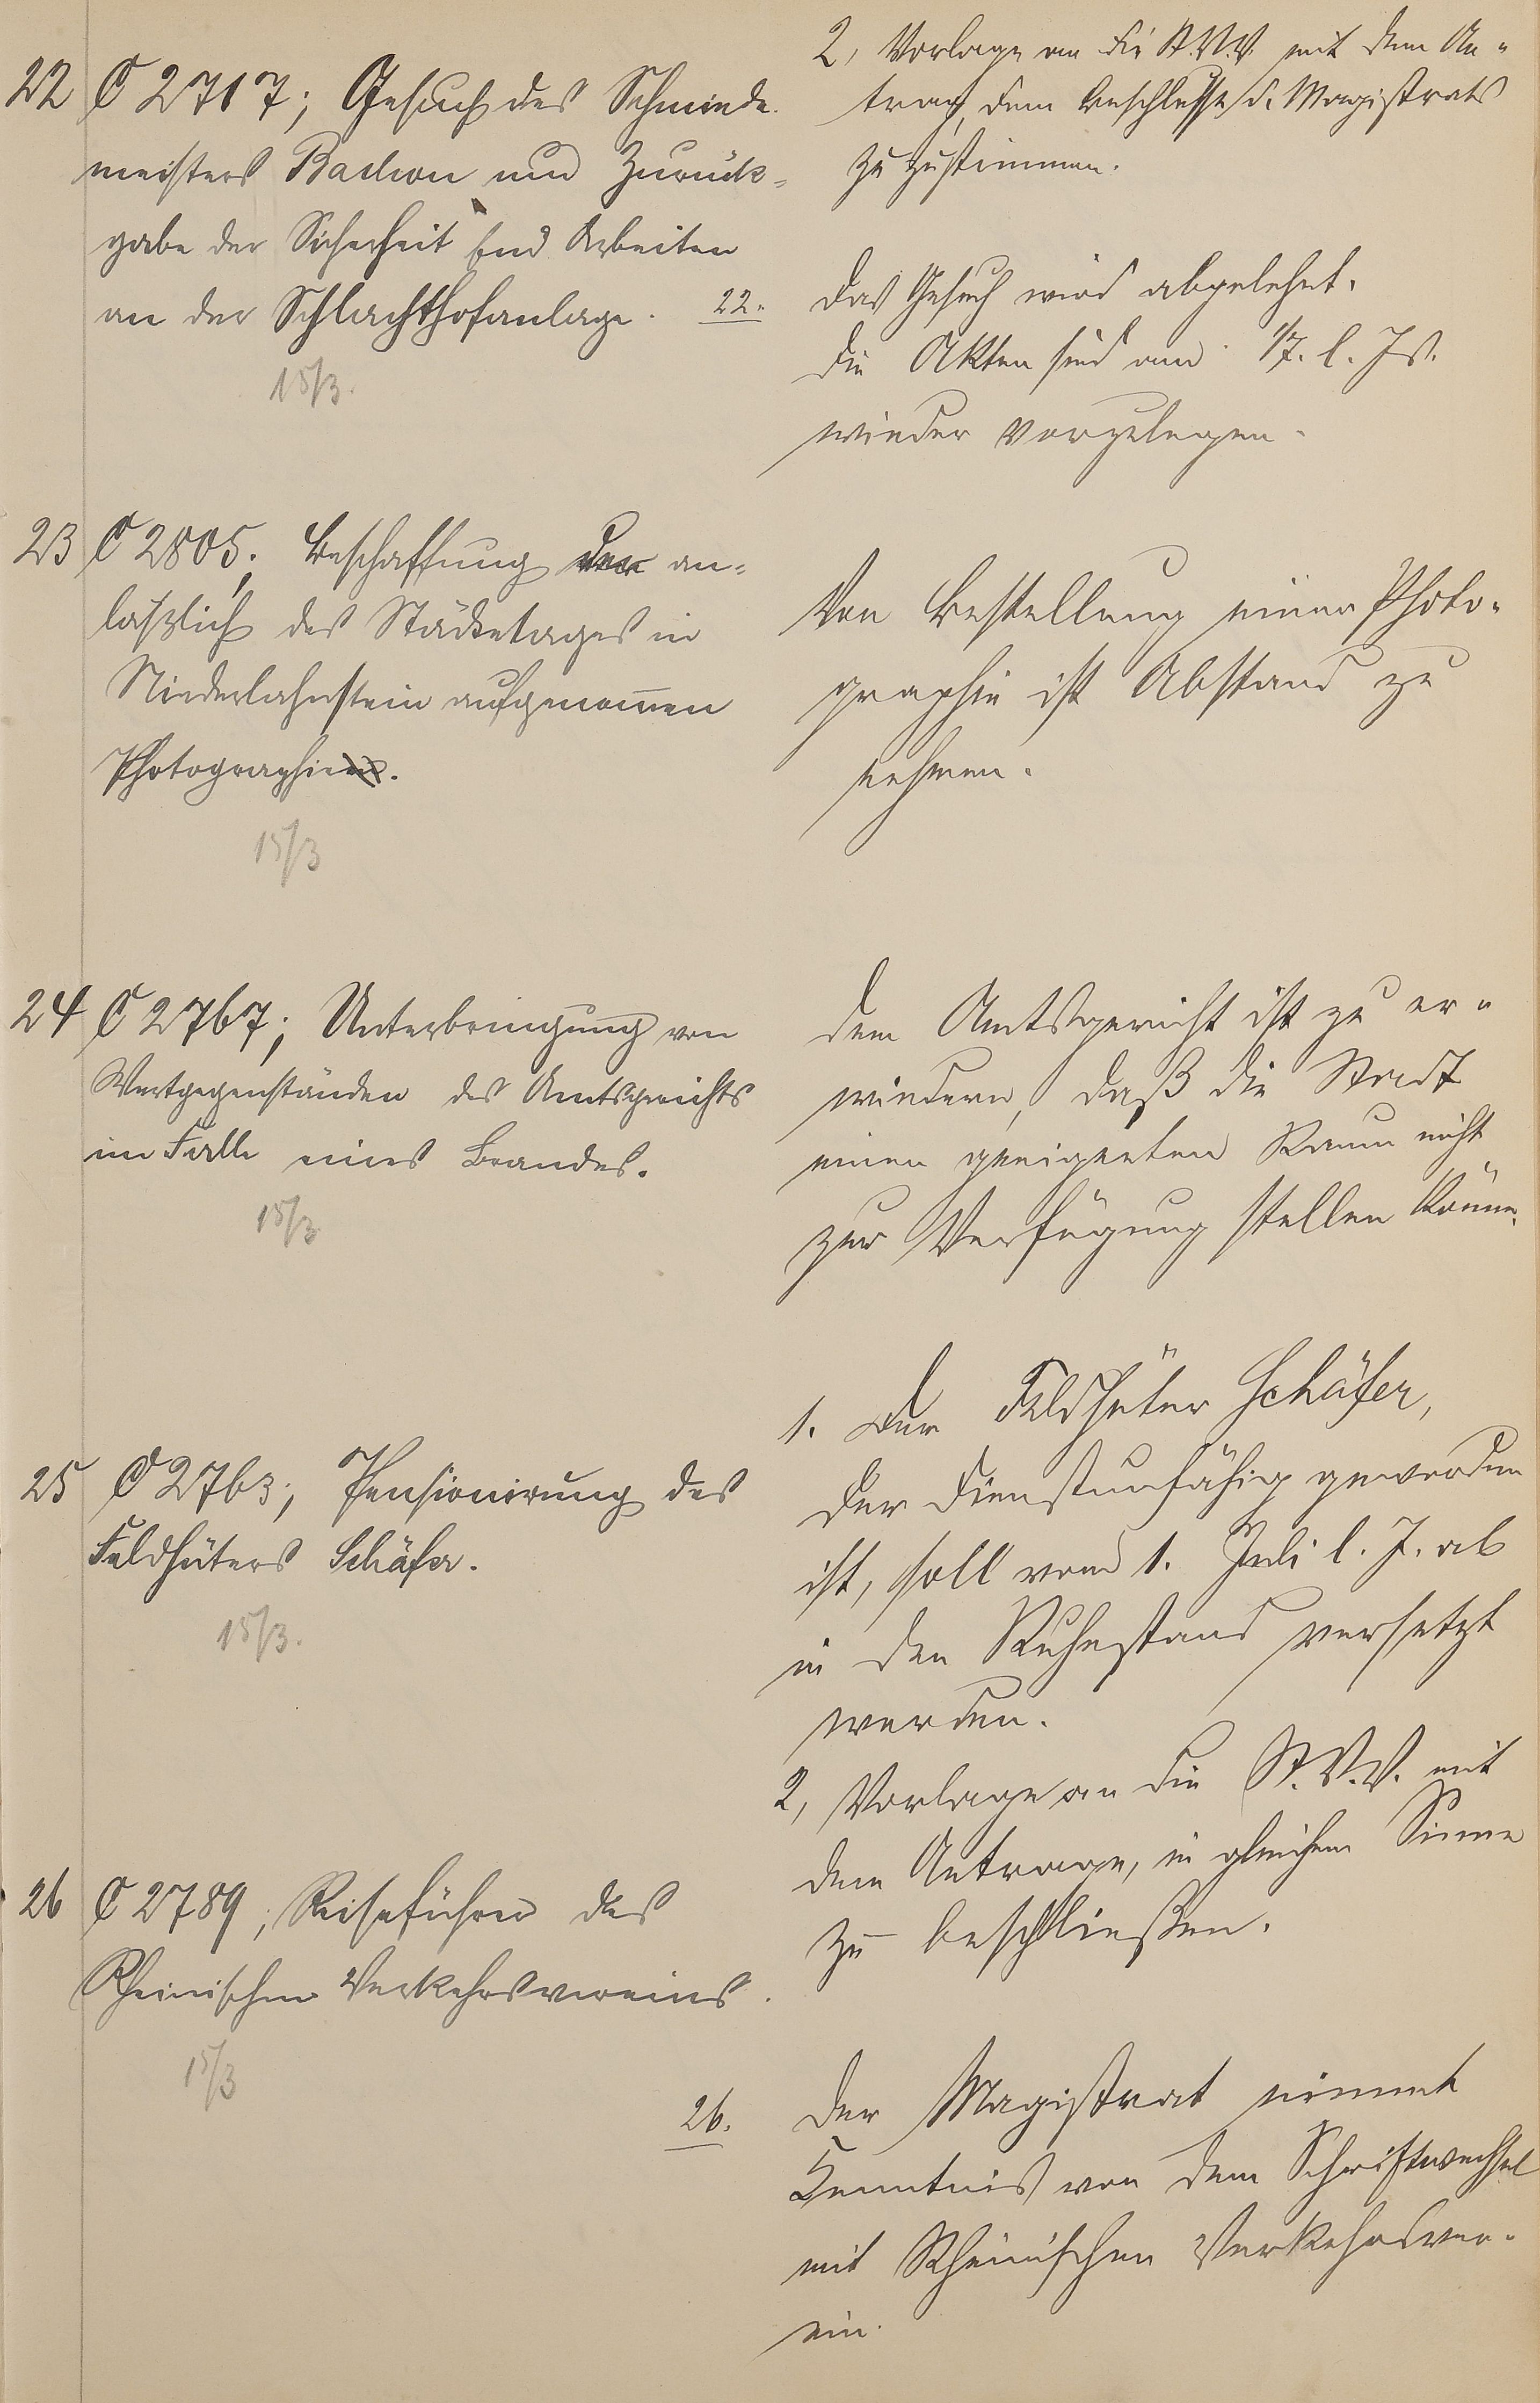 2, Vorlage an die St.V.V. mit dem An-
trag, dem Beschlusse d. Magistrats
zu zustimmen.
22 C 2717; Gesuch des Schmiede-
meisters um Zurück-
gabe der Sicherheit Arbeiten
an der Schlachthofanlage.
15/3.
22. Das Gesuch wird abgelehnt.
Die Akten sind am 1/7. l. Js.
wieder vorzulegen.
23 C 2805; Beschaffung der an-
läßlich des Städtetages in
Niederlahnstein aufgenommen
Photographien.
15/3
Von Bestellung einer Photo-
graphie ist Abstand zu
nehmen.
24 C 2767; Unterbringung von
Wertgegenständen des Amtsgerichts
im Falle eines Brandes.
15/3
Dem Amtsgericht ist zu er-
wiedern, daß die Stadt
einen geeigneten Raum nicht
zur Verfügung stellen könne.
25 C 2763; Pensionirung des
Feldhüters Schäfer.
15/3.
1. Der Feldhüter Schäfer,
der dienstunfähig geworden
ist, soll vom 1. Juli l. J. ab
in den Ruhestand versetzt
werden.
2, Vorlage an die St.V.V. mit
dem Antrage, in gleichem Sinne
zu beschließen.
26 C 2789; Reiseführer des
Rheinischen Verkehrsvereins.
15/3
26. Der Magistrat nimmt
Kenntnis von dem Schriftwechsel
mit Rheinischen Verkehrsver-
ein.